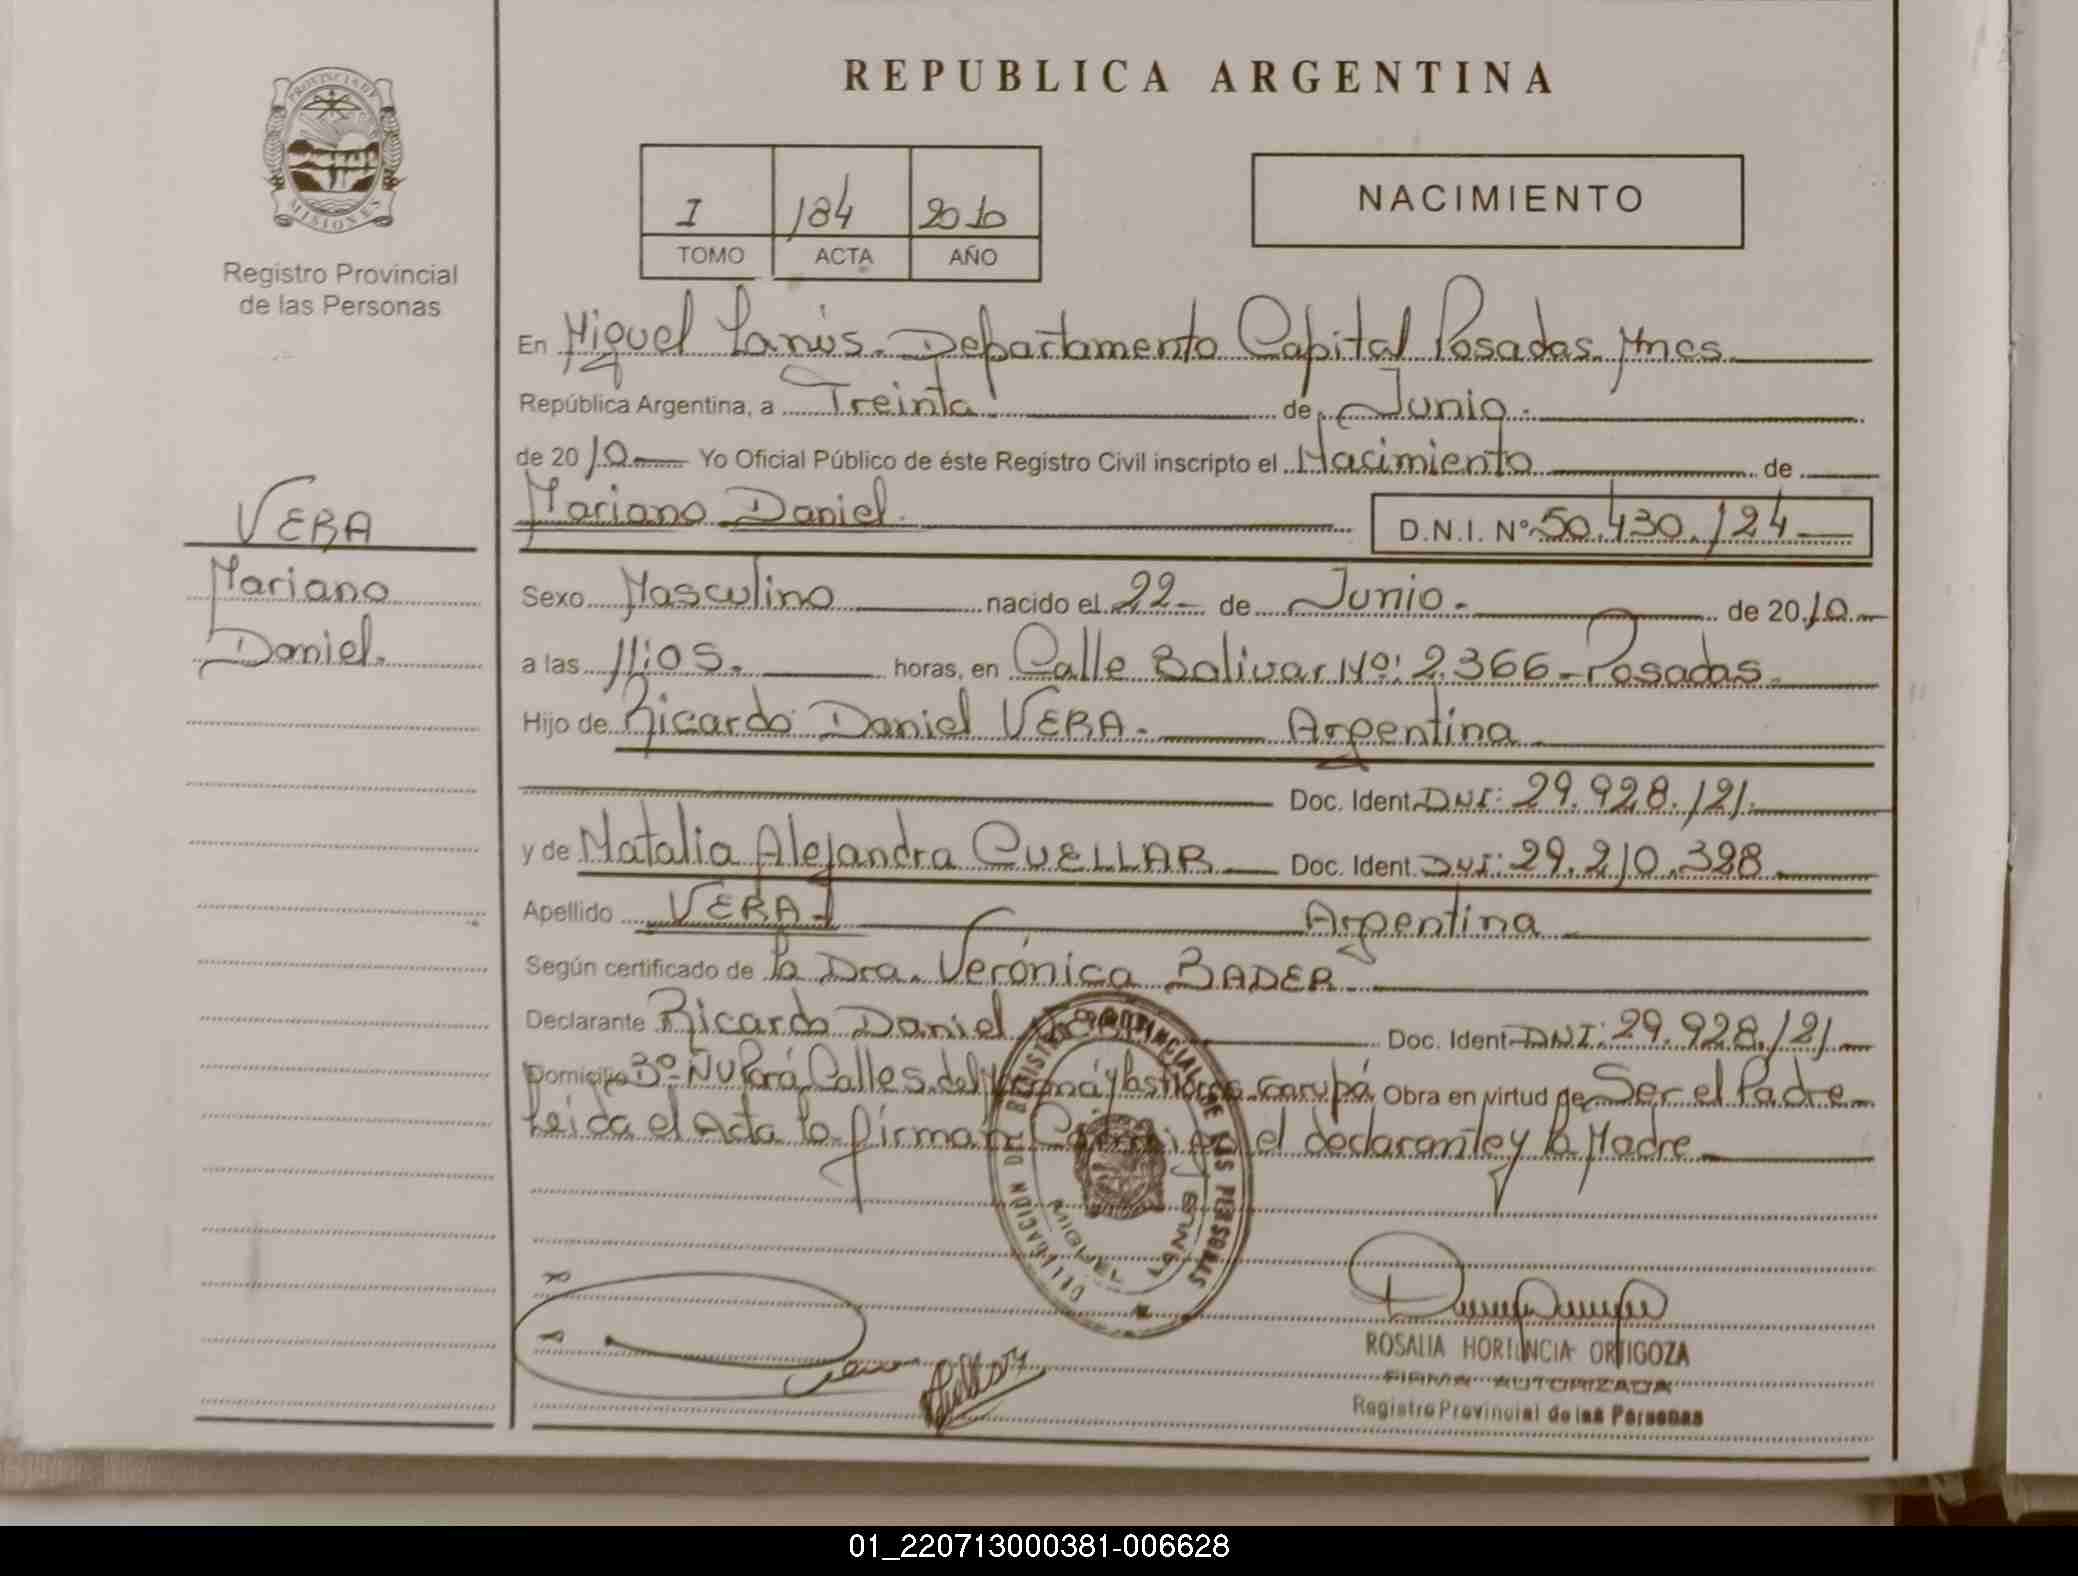 PROVINCIA DE
MISIONES
Registro Provincial
de las Personas
VERA
Mariano
Daniel.
REPUBLICA ARGENTINA
I 184 2010
TOMO ACTA AÑO
NACIMIENTO
En Miguel Lanús. Departamento Capital Posadas. Mnes.
República Argentina, a Treinta de Junio.
de 2010 Yo Oficial Público de éste Registro Civil inscripto el Nacimiento de
Mariano Daniel. D.N.I. Nº 50.430.124
Sexo Masculino nacido el 22 de Junio. de 2010
a las 11:05. horas, en Calle Bolivar Nº: 2.366 - Posadas.
Hijo de Ricardo Daniel VERA. Argentina
Doc. Ident. DNI: 29.928.121.
y de Natalia Alejandra CUELLAR Doc. Ident. DNI: 29.210.388
Apellido VERA Argentina
Según certificado de la Dra. Verónica BADER
Declarante Ricardo Daniel Doc. Ident. DNI: 29.928.121
Domicilio Bº. Ñu Porá, Calles. del y las Garupá Obra en virtud de Ser el Padre
Leida el Acta la firman Conmigo el declarante y la Madre
DELEGACIÓN DE REGISTRO PROVINCIAL DE LAS PERSONAS
MIGUEL LANUS
ROSALIA HORTENCIA ORTIGOZA
FIRMA AUTORIZADA
Registro Provincial de las Personas
01_220713000381-006628